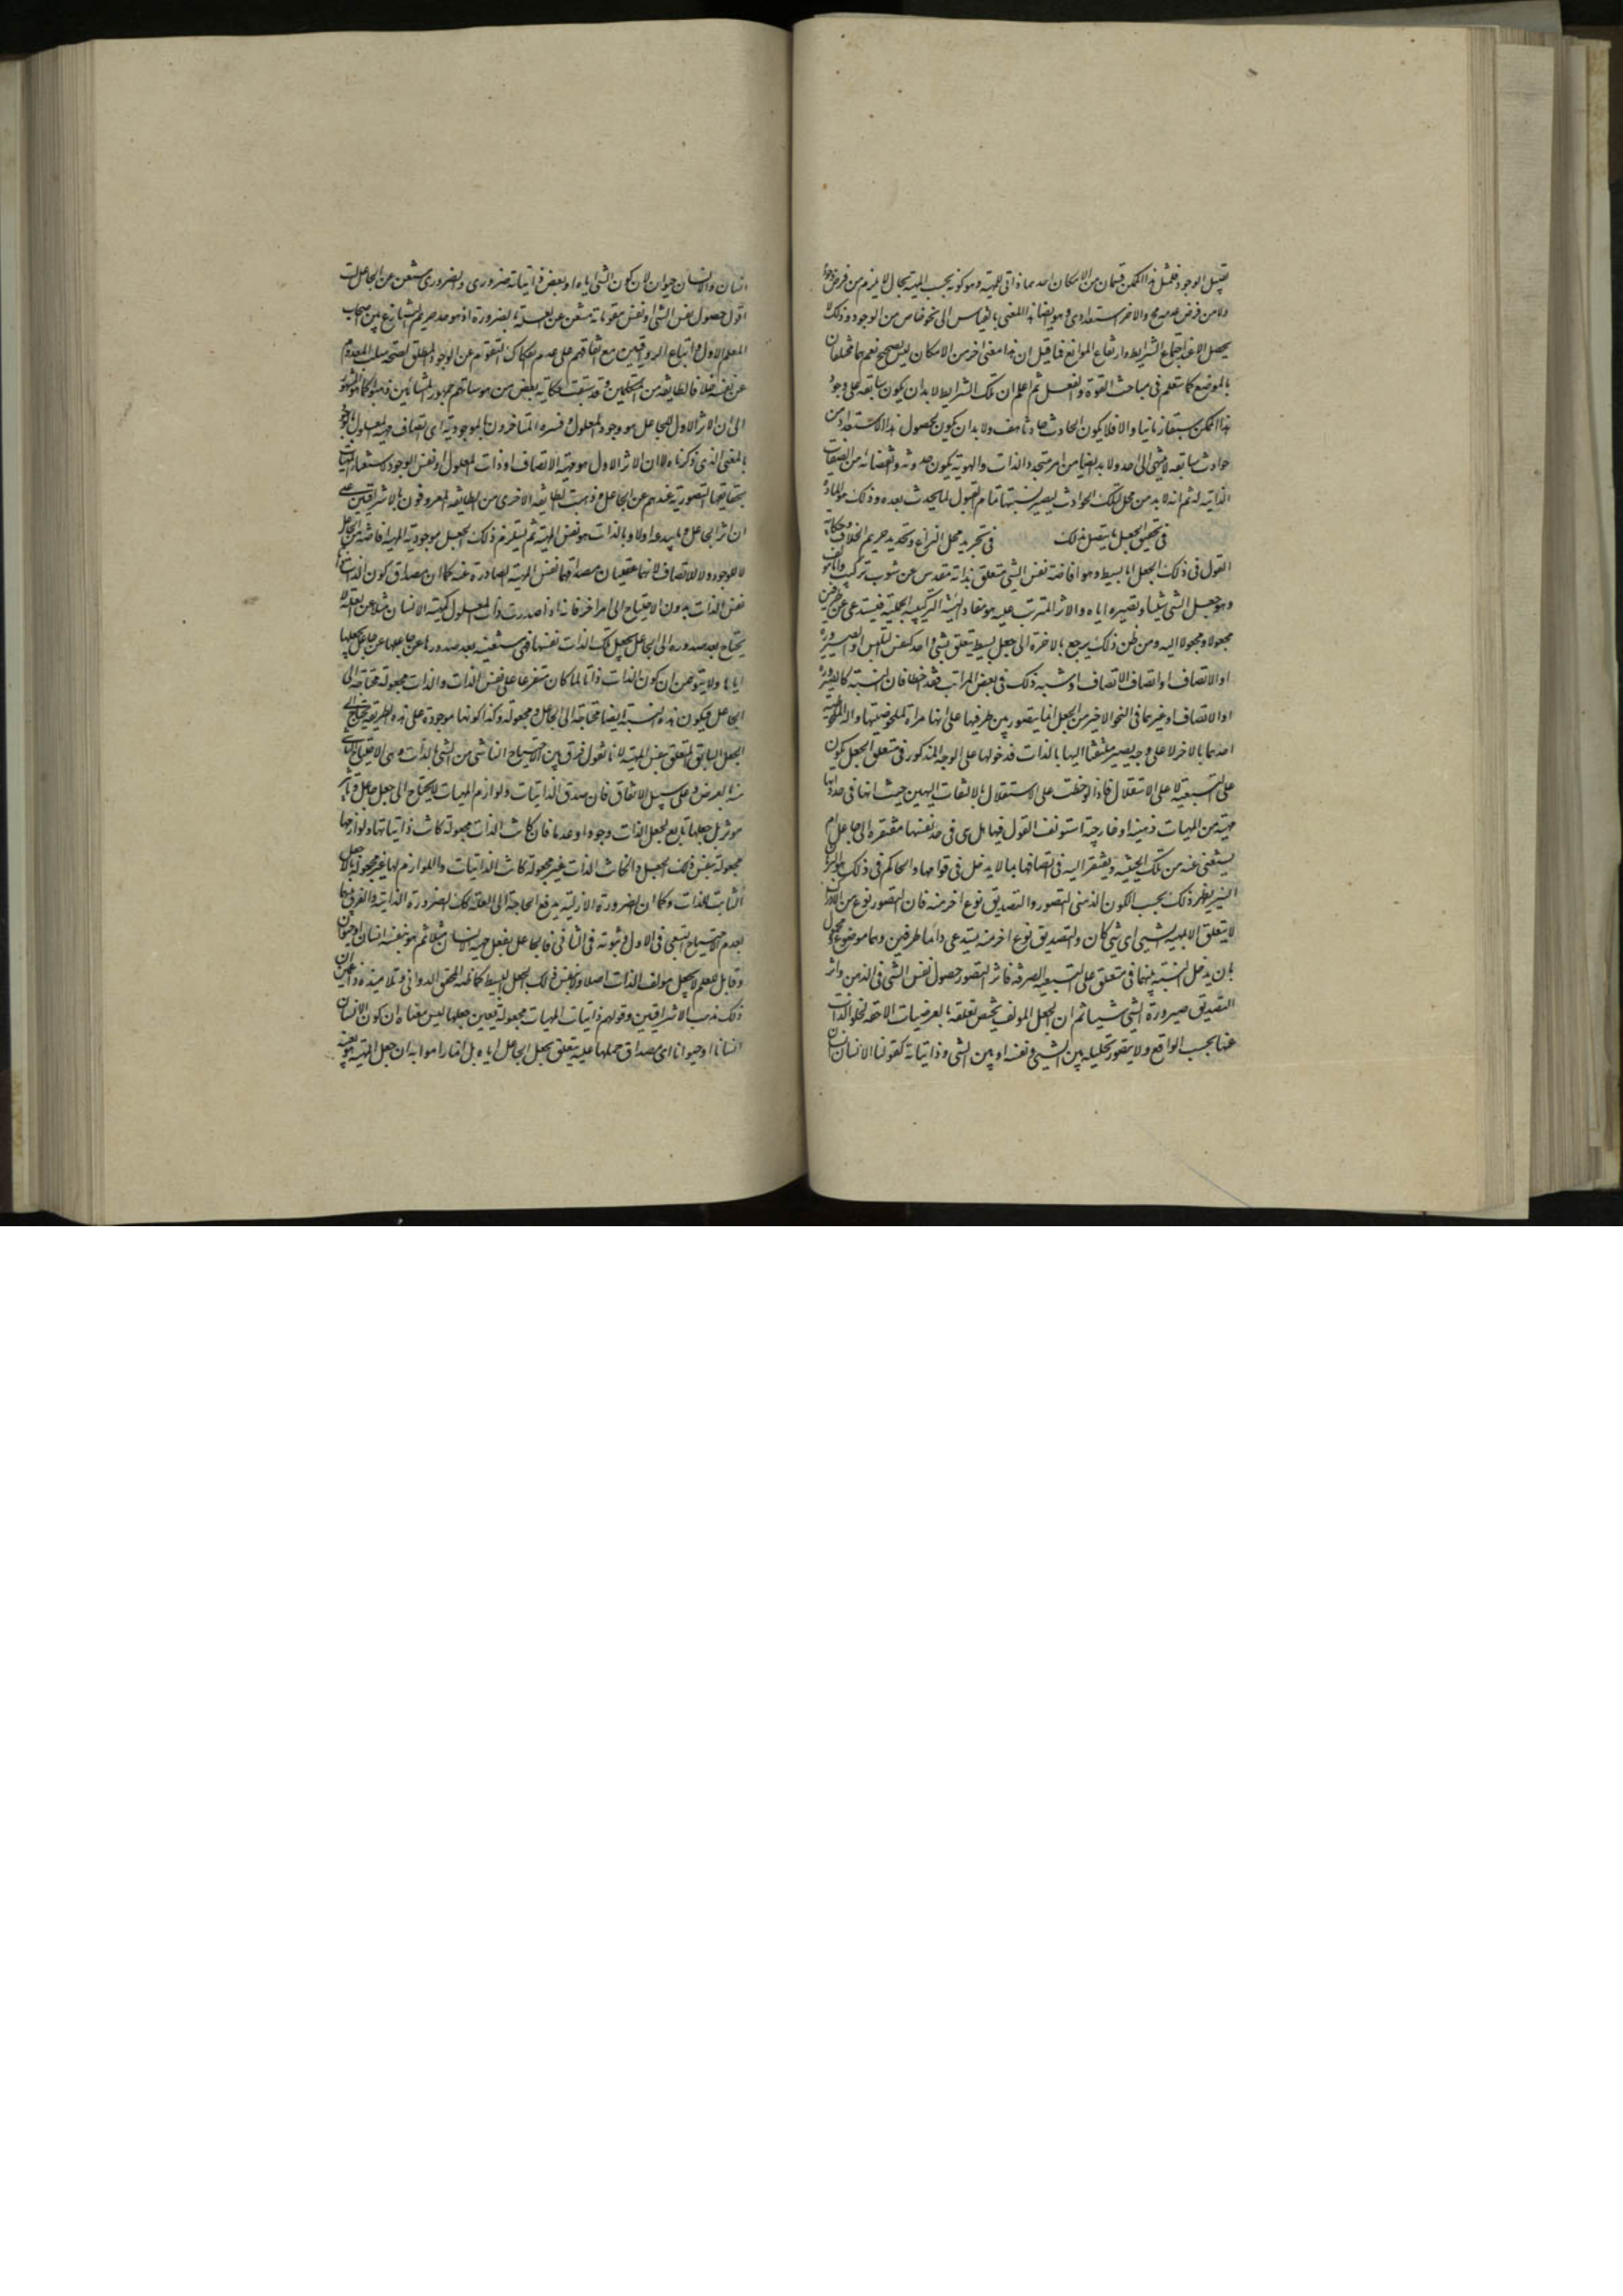 تقبل الوجود فلمثل هذا الممكن قسمان من الامكان احدهما ذاتى للمهية وهو كونه بحسب المهية بحال لا يلزم من فرض وجوده
ولا من فرض عدمه مح والاخر استعدادى وهو ايضا هذا المعنى بالقياس الى نحو خاص من الوجود وذلك لا
يحصل الا عند اجتماع الشرايط وارتفاع الموانع فما قيل ان هذا معنى اخر من الامكان ليس بصحيح نعم هما مختلفان
بالموضوع كما ستعلم فى مباحث القوة والفعل ثم اعلم ان تلك الشرايط لا بد ان يكون سابقه على وجود
هذا الممكن سبقا زمانيا والا فلا يكون الحادث حادثا هف ولا بد ان يكون لحصول هذا الاستعداد من
حوادث سابقه لا ينتهى الى حد ولا بد ايضا من امر متجدد الذات والهوية يكون حدوثه وانقضائه من الصفات
الذاتيه له ثم انه لا بد من محل لتلك الحوادث يصير بسببها تام القبول لما يحدث بعده وذلك هو المادة
فى تحقيق الجعل وما يتصل بذلك فى تحرير محل النزاع وتحديد حريم الخلاف وحكاية
القول فى ذلك الجعل اما بسيط وهو افاضة نفس الشى متعلق بذاته مقدس عن شوب تركيب واما مؤلف
وهو جعل الشى شيئا وتصييره اياه والاثر المترتب عليه هو مفاد الهيئة التركيبيه الحملية فيستدعى طرفين
مجعولا ومجعولا اليه ومن ظن ذلك يرجع بالاخره الى جعل بسيط يتعلق بشى واحد كنفس التلبس او الصيرورة
او الاتصاف او اتصاف الاتصاف او شبه ذلك فى بعض المراتب فقد اخطا فان النسبة كالصيرورة
او الاتصاف او غيرهما فى النحو الاخير من الجعل انما يتصور بين طرفيها على انها مراة لملحوظيتها واله لملاحظة
احدهما بالاخر لا على وجه يصير ملتفتا اليها بالذات فدخولها على الوجه المذكور فى متعلق الجعل يكون
على التبعية لا على الاستقلال فاذا لوحظت على الاستقلال بالالتفات اليها من حيث انها فى حد ذاتها
مهية من المهيات ذهنية او خارجية استونف القول فيها هل هى فى حد نفسها مفتقره الى جاعل ام
يستغنى عنه من تلك الحيثيه ويفتقر اليه فى اتصافها بما لا يدخل فى قوامها والحاكم فى ذلك هو البرهان
النير نظير ذلك بحسب الكون الذهنى التصور والتصديق نوع اخر منه فان التصور نوع من الادراك
لا يتعلق الا بمهيه الشى اى شى كان والتصديق نوع اخر منه يستدعى دائما طرفين وهما موضوع ومحمول
بان يدخل النسبة بينهما فى متعلق على التبعيه الصرفه فاثر التصور حصول نفس الشى فى الذهن واثر
التصديق صيرورة الشى شيئا ثم ان الجعل المؤلف يختص تعلقه بالعرضيات اللاحقه لخلو الذات
عنها بحسب الواقع ولا يتصور تحليله بين الشى ونفسه او بين الشى وذاتياته كقولنا الانسان انسان
انسان والانسان حيوان لان كون الشى اياه او بعض ذاتياته ضرورى والضرورى مستغن عن الجاعل لست
اقول حصول نفس الشى او نفس مقوماته مستغن عن العلة بالضرورة اذ هو حد حريم التنازع بين اصحاب
المعلم الاول واتباع الرواقيين مع اتفاقهم على عدم انفكاك التقوم عن الوجود المطلق لصحة سلب المعدوم
عن نفسه خلافا لطائفه من المتكلمين وقد سبقت حكايه بعض من هوساتهم فجمهور المشائين ذهبوا كما هو المشهور
الى ان الاثر الاول للجاعل هو وجود المعلول وفسره المتاخرون بالموجودية اى اتصاف مهيه المعلول بالوجود
بالمعنى الذى ذكرناه لا ان الاثر الاول هو مهية الاتصاف او ذات المعلول او نفس الوجود لاستغناء المهيات
بحقايقها التصورية عندهم عن الجاعل وذهبت الطائفه الاخرى من الطائفه المعروفون بالاشراقيين على
ان اثر الجاعل وما يبدعه اولا وبالذات هو نفس المهية ثم يستلزم ذلك الجعل موجودية المهية افاضه من الجاعل
لا للوجود ولا للاتصاف لانهما عقليان مصداقهما نفس المهية الصادرة عنه كما ان مصداق كون الذات ذاتا
نفس الذات بدون الاحتياج الى امر اخر فانه اذا صدرت ذات المعلول كمهية الانسان مثلا عن العلة لا
يحتاج بعد صدوره الى الجاعل يجعل تلك الذات نفسها فهى مستغنيه بعد صدورها عن جاعلها عن جاعل يجعلها
اياها ولا يتوهمن ان كون الذات ذاتا لما كان متفرعا على نفس الذات والذات مجعولة محتاجه الى
الجاعل فيكون هذه النسبة ايضا محتاجة الى الجاعل ومجعولة وكذا كونها موجودة على هذه الطريقه يحتاج الى
الجعل السابق المتعلق بنفس المهية لانا نقول فرق بين الاحتياج الناشى من الشى بالذات وبين الاحتياج الناشى
منه بالعرض وعلى سبيل الاتفاق فان صدق الذاتيات ولوازم المهيات لا يحتاج الى جعل جاعل وتاثير
موثر بل جعلها تابع لجعل الذات وجودا وعدما فان كانت الذات مجعولة كانت ذاتياتها ولوازمها
مجعولة بنفس ذلك الجعل وان كانت الذات غير مجعولة كانت الذاتيات واللوازم لها غير مجعولة باللاجعل
الثابت للذات وكما ان الضرورة الازلية يدفع الحاجة الى العلة كذلك الضرورة الذاتية والفرق بينهما
بعدم الاحتياج التبعى فى الاول وثبوته فى الثانى فالجاعل يفعل مهية الانسان مثلا ثم هو بنفسه انسان او حيوان
وقابل للعلم لا بجعل مؤلف الذات اصلا ولا بنفس ذلك الجعل البسيط كما ظنه المحقق الدوانى وتلامذته زاعمين ان
ذلك مذهب الاشراقيين وقولهم ذاتيات المهيات مجعولة بعين جعلها ليس معناه ان كون الانسان
انسانا او حيوانا اى مصداق حملهما عليه يتعلق بجعل الجاعل اياه بل انما راموا به ان جعل المهية هو بعينه